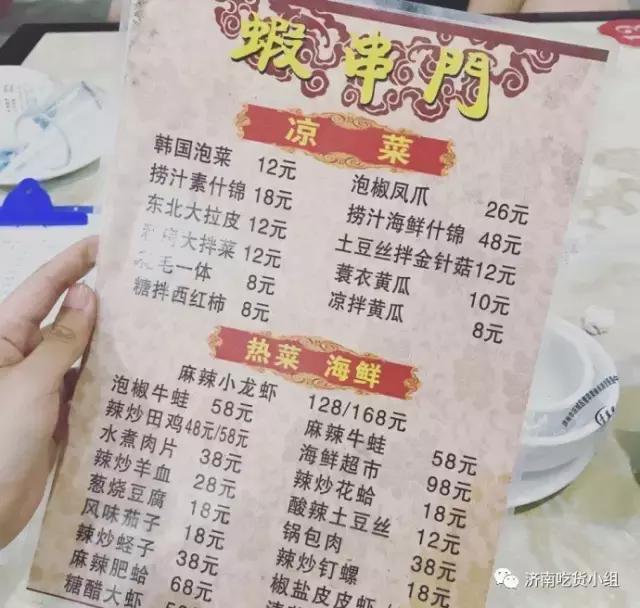 蝦串門
凉菜
韩国泡菜 12元
捞汁素什锦 18元
东北大拉皮 12元
大拌菜 12元
毛一体 8元
糖拌西红柿 8元
泡椒凤爪 26元
捞汁海鲜什锦 48元
土豆丝拌金针菇 12元
蓑衣黄瓜 10元
凉拌黄瓜 8元
热菜 海鲜
麻辣小龙虾 128/168元
泡椒牛蛙 58元
辣炒田鸡 48元/58元
水煮肉片 38元
辣炒羊血 28元
葱烧豆腐 18元
风味茄子 18元
辣炒蛏子 38元
麻辣肥蛤 68元
糖醋大虾
麻辣牛蛙 58元
海鲜超市 98元
辣炒花蛤 18元
酸辣土豆丝 12元
锅包肉 38元
辣炒钉螺 18元
椒盐皮皮虾
济南吃货小组